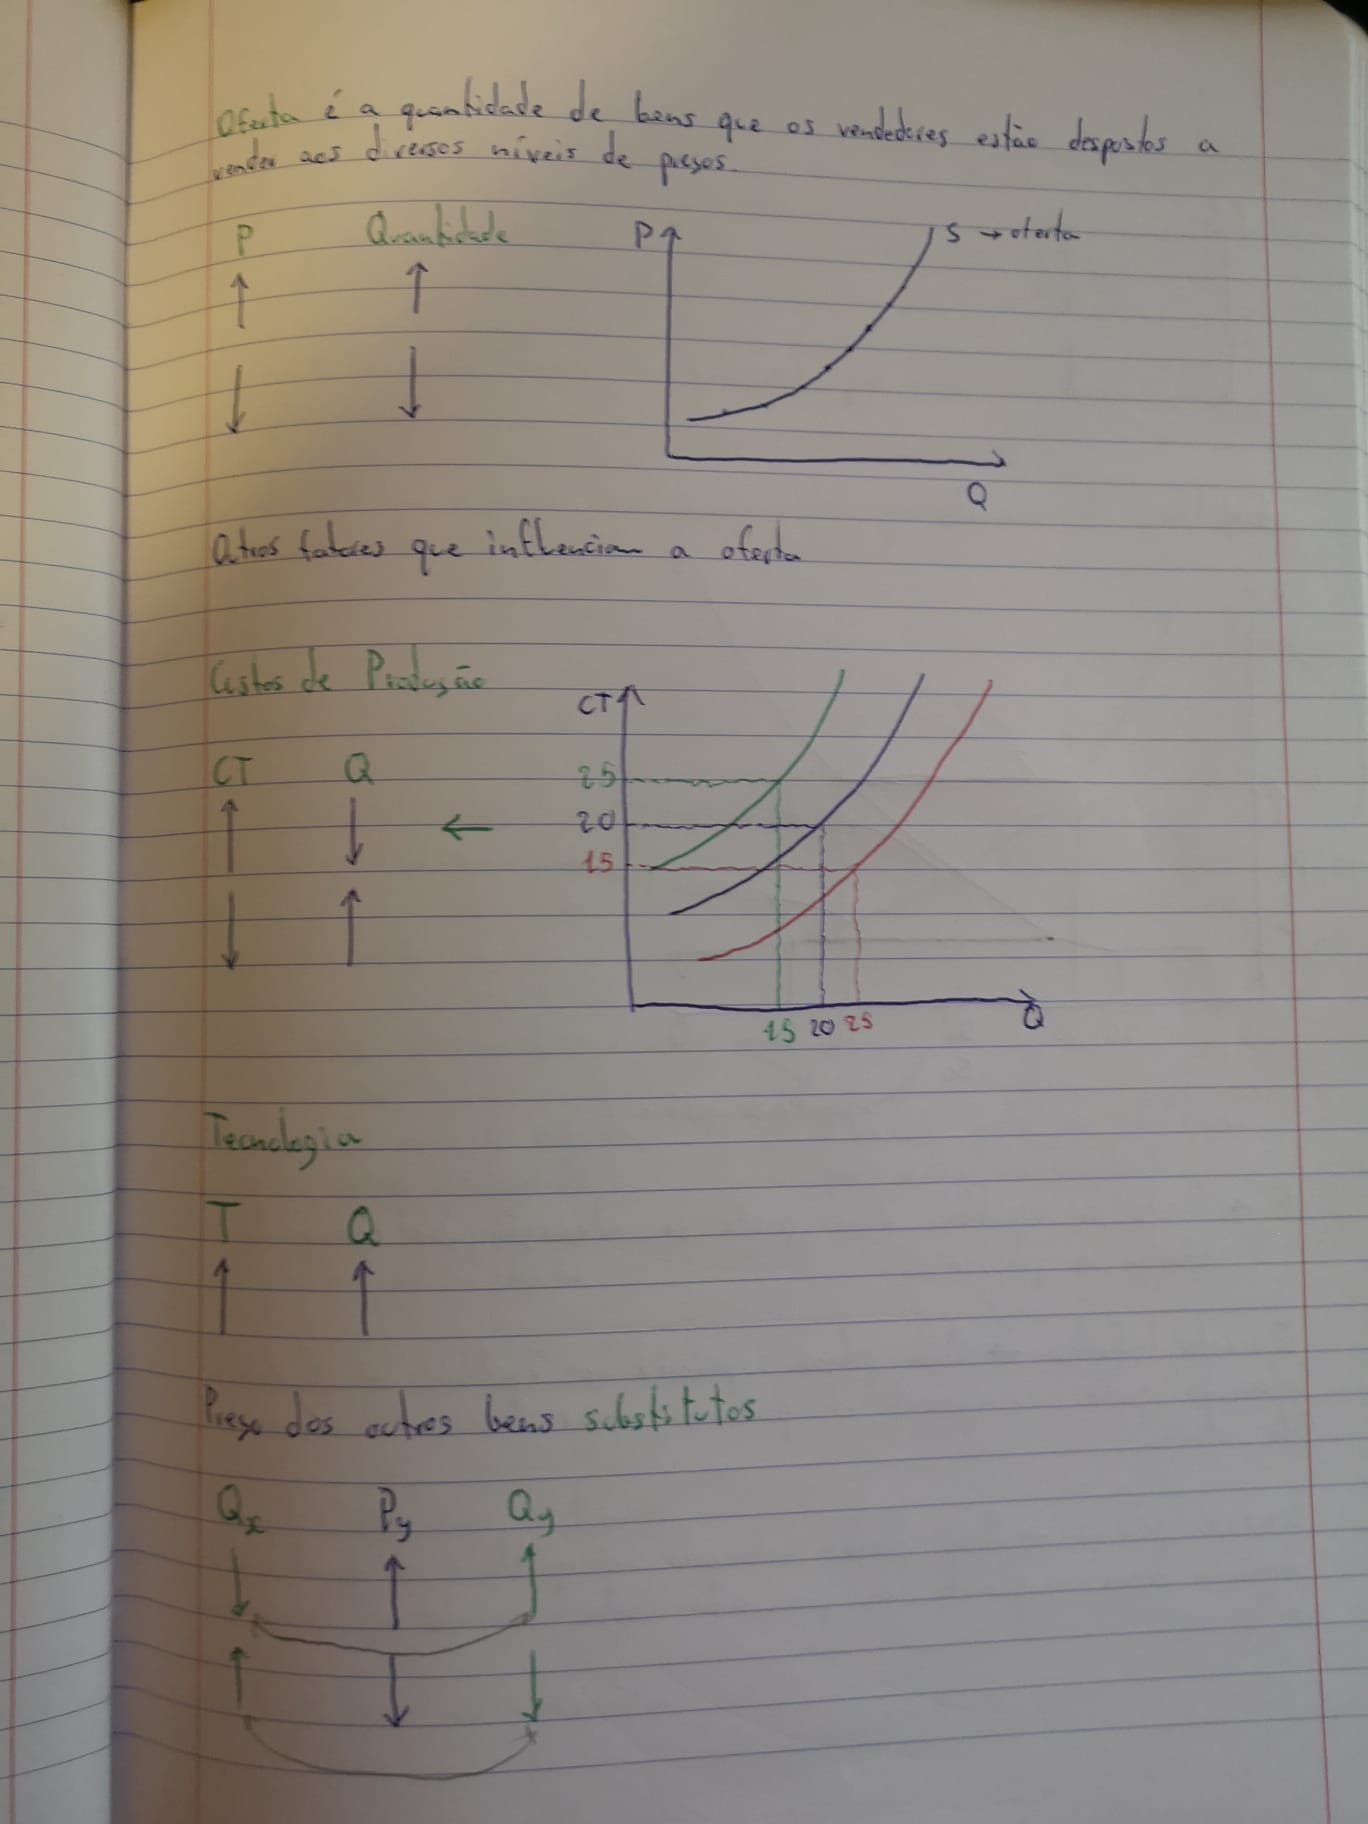 Oferta é a quantidade de bens que os vendedores estão despostos a
vender aos diversos níveis de preços.
P Quantidade
P S → oferta
Q
Otros fatores que influenciam a oferta
Custos de Produção
CT Q
CT
25
20
15
15 20 25
Q
Tecnologia
T Q
Preço dos outros bens substitutos
Qx Py Qy